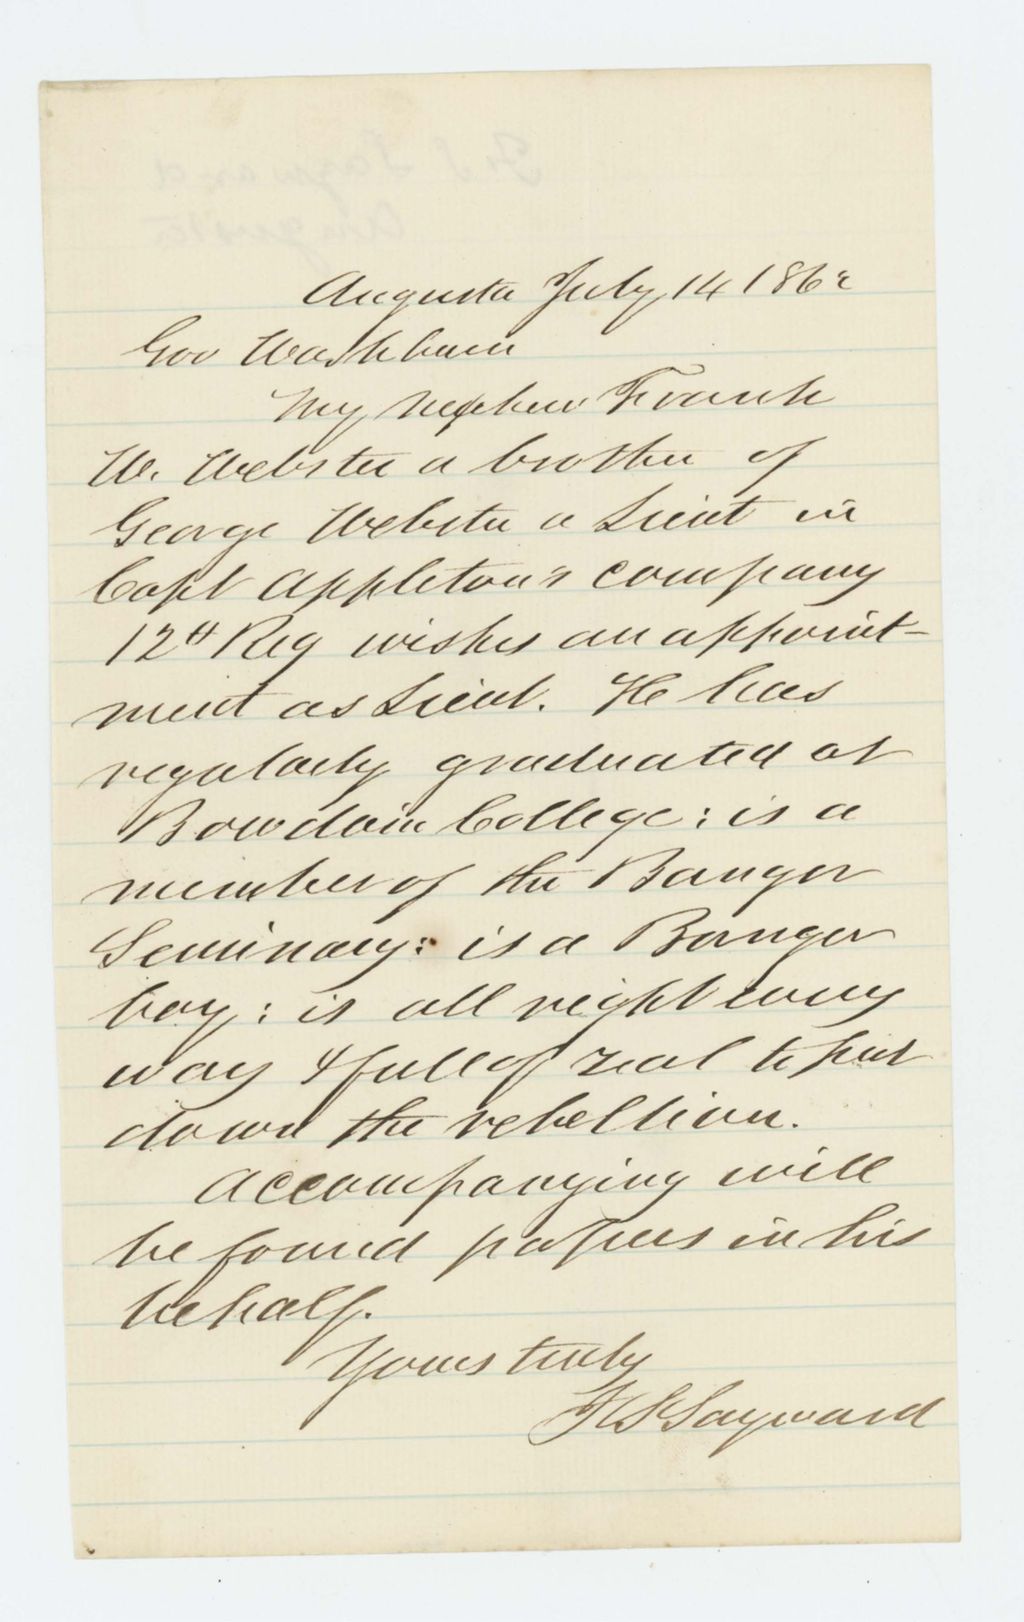 Augusta July 14 1862
Gov Washburn
My nephew Frank
W. Webster a brother of
George Webster a Lieut in
Capt Appleton's company
12th Reg wishes an appoint-
ment as Lieut. He has
regularly graduated at
Bowdoin College: is a
member of the Bangor
Seminary: is a Bangor
boy: is all right every
way & full of zeal to put
down the rebellion.
Accompanying will
be found papers in his
behalf.
Yours truly
F S Sayward